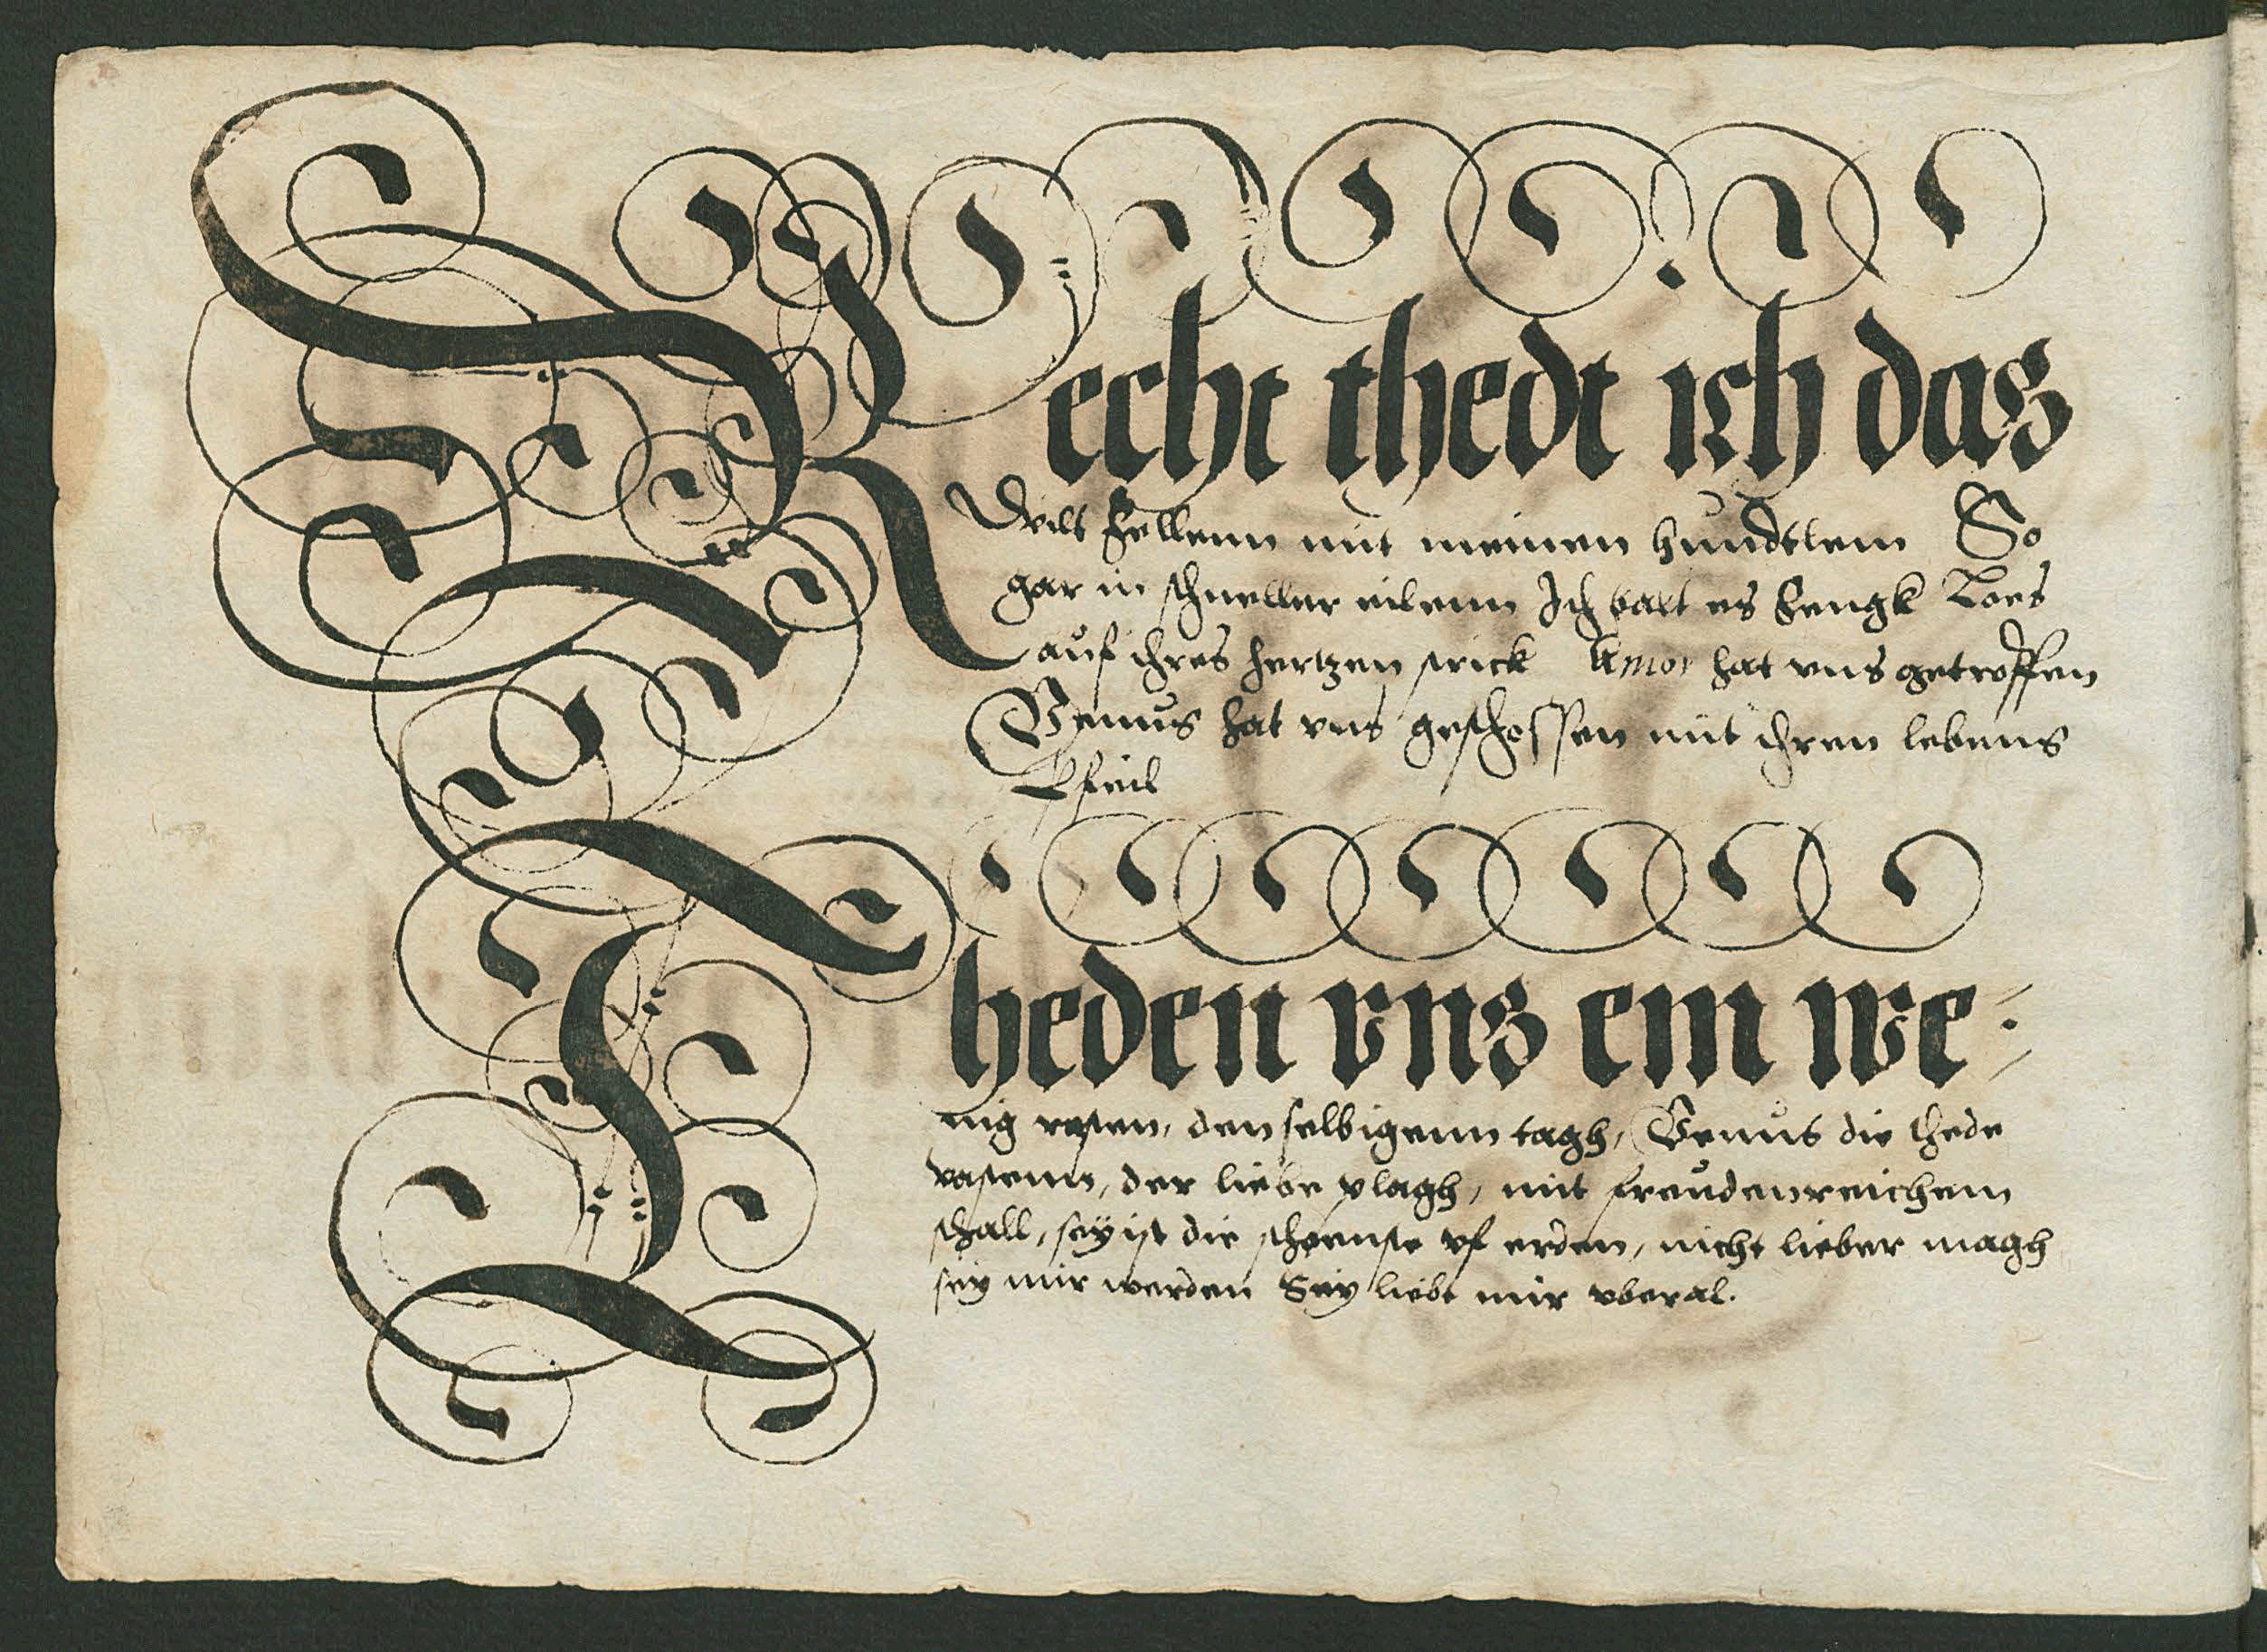 Recht thedt ich das
Wilt fellenn mit meinen hundtlein So
gar in schneller eilenn Ich balt es fengk Loes
auf ihres hertzen strick Amor hat vns getroffen
Venus hat vns geschossen mit ihren lebens
Pfeil
Theden vns ein we:
nig rasten, den selbigenn tagh, Venus die thede
vastenn, der liebe plagh, mit freudenreichem
schall, sey ist die schoenste vf erden, nicht lieber magh
sey mir werden Sey liebt mir vberal.